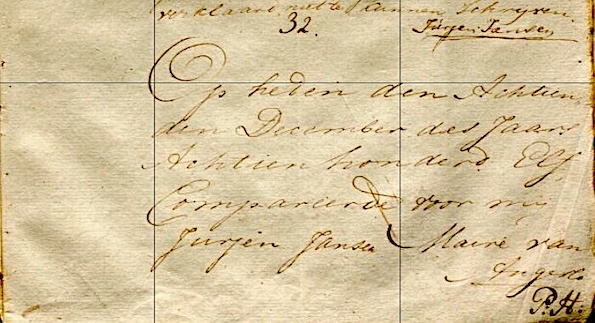 verklaart niet te kunnen Schryven.
32. Jurjen Jansen
Op heden den Achtien
den December des Jaars
Achtien honderd Elf
Compareerde voor my
Jurjen Jansen Maire van
P: H: